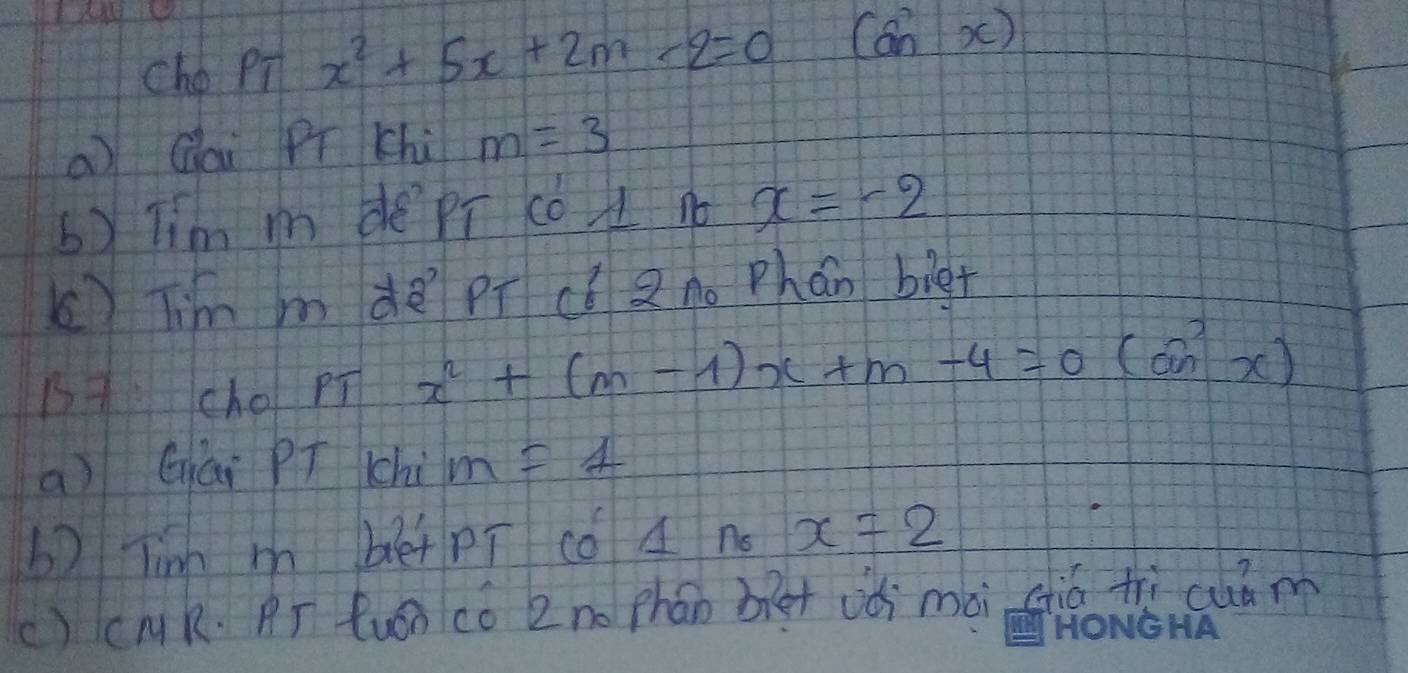 Cho PT x² + 5x + 2m - 2 = 0 (ẩn x)
a) Giải PT khi m = 3
b) Tìm m để PT có 1 no x = -2
c) Tìm m để PT có 2 no phân biệt
B7: Cho PT x² + (m - 1)x + m - 4 = 0 (ẩn x)
a) Giải PT khi m = 1
b) Tính m biết PT có 1 no x = 2
c) CMR. PT luôn có 2 no phân biệt với mọi giá trị của m
HONG HA